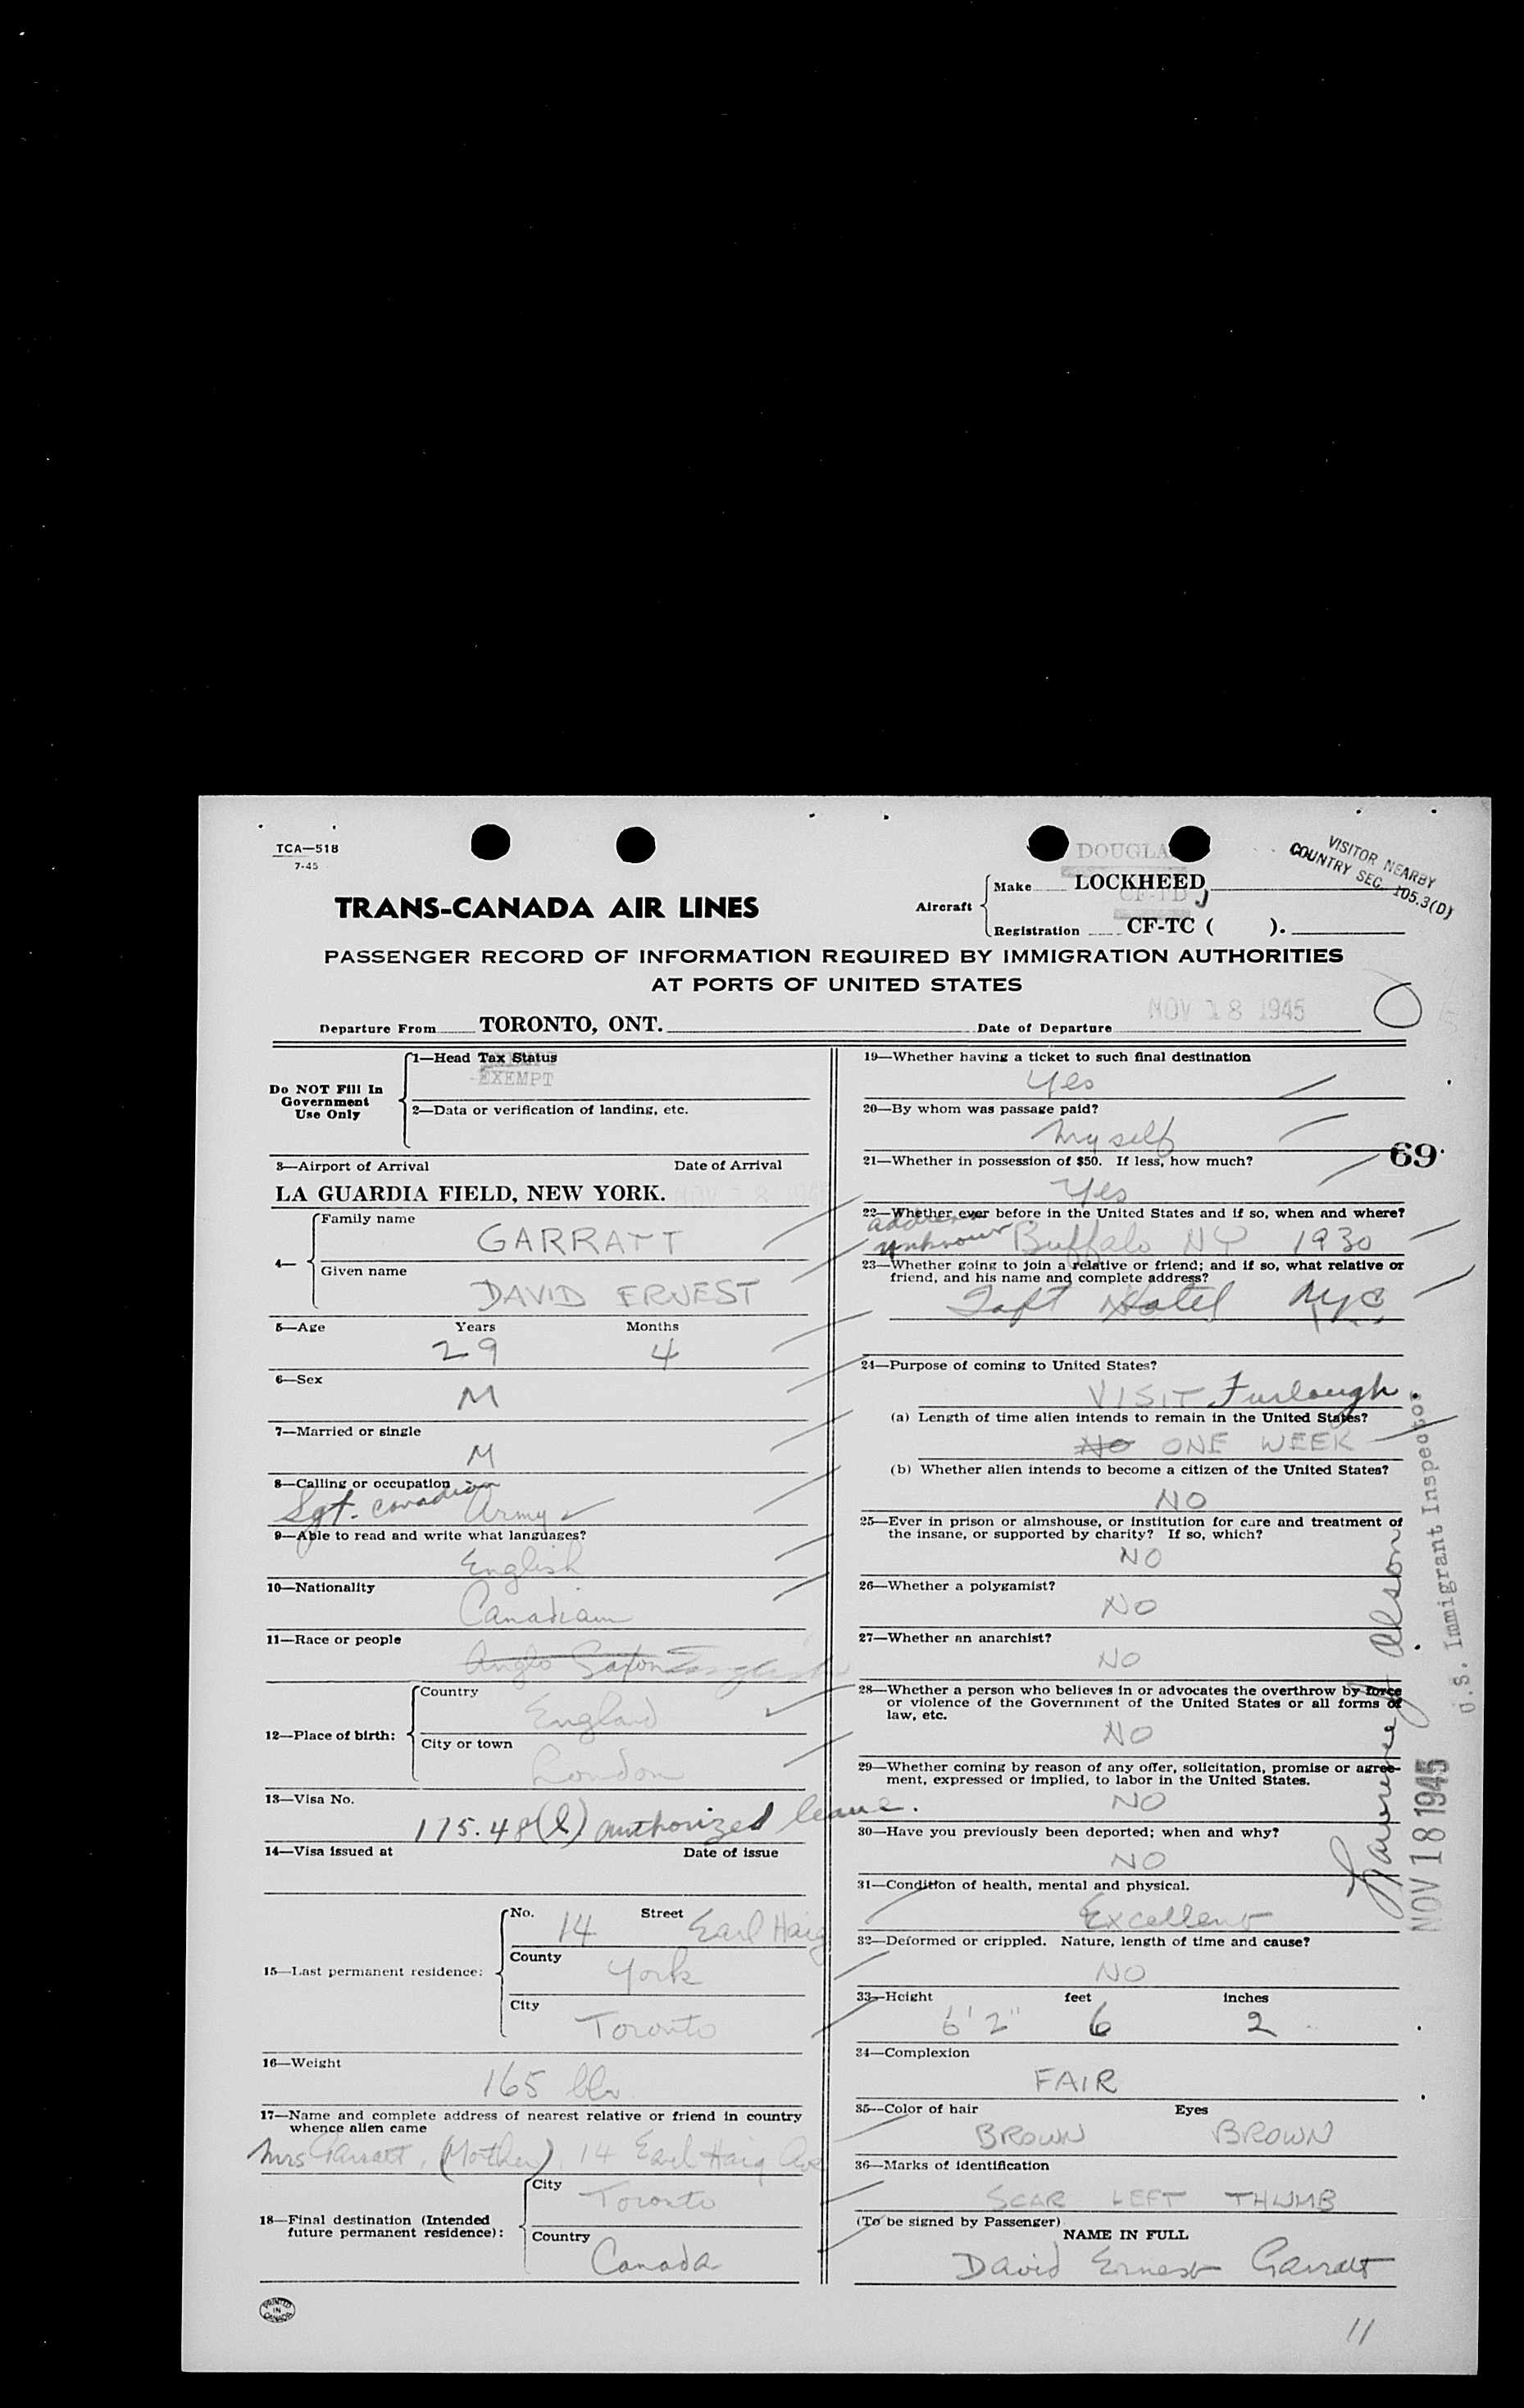 TCA—518
7-45
DOUGLA
VISITOR NEARBY
COUNTRY SEC. 105.3(D)
TRANS-CANADA AIR LINES
Aircraft
Make LOCKHEED
CF-TD J
Registration CF-TC ( ).
PASSENGER RECORD OF INFORMATION REQUIRED BY IMMIGRATION AUTHORITIES
AT PORTS OF UNITED STATES
Departure From TORONTO, ONT. Date of Departure NOV 18 1945
Do NOT Fill In
Government
Use Only
1—Head Tax Status
EXEMPT
2—Data or verification of landing, etc.
3—Airport of Arrival Date of Arrival
LA GUARDIA FIELD, NEW YORK. NOV 18 1945
4—
Family name
GARRATT
Given name
DAVID ERNEST
5—Age Years Months
29 4
6—Sex
M
7—Married or single
M
8—Calling or occupation
Sgt. Canadian Army
9—Able to read and write what languages?
English
10—Nationality
Canadian
11—Race or people
Anglo Saxon English
12—Place of birth:
Country
England
City or town
London
13—Visa No.
175.48(l) authorized leave.
14—Visa issued at Date of issue
15—Last permanent residence:
No. 14 Street Earl Haig
County
York
City
Toronto
16—Weight
165 lbs
17—Name and complete address of nearest relative or friend in country
whence alien came
Mrs Garratt, (Mother) 14 Earl Haig Ave
18—Final destination (Intended
future permanent residence):
City
Toronto
Country
Canada
PRINTED
IN
CANADA
19—Whether having a ticket to such final destination
Yes
20—By whom was passage paid?
Myself
69
21—Whether in possession of $50. If less, how much?
Yes
22—Whether ever before in the United States and if so, when and where?
address
unknown Buffalo NY 1930
23—Whether going to join a relative or friend; and if so, what relative or
friend, and his name and complete address?
Taft Hotel NYC
24—Purpose of coming to United States?
VISIT Furlough.
(a) Length of time alien intends to remain in the United States?
NO ONE WEEK
(b) Whether alien intends to become a citizen of the United States?
NO
25—Ever in prison or almshouse, or institution for care and treatment of
the insane, or supported by charity? If so, which?
NO
26—Whether a polygamist?
NO
27—Whether an anarchist?
NO
28—Whether a person who believes in or advocates the overthrow by force
or violence of the Government of the United States or all forms of
law, etc.
NO
29—Whether coming by reason of any offer, solicitation, promise or agree-
ment, expressed or implied, to labor in the United States.
NO
30—Have you previously been deported; when and why?
NO
31—Condition of health, mental and physical.
Excellent
32—Deformed or crippled. Nature, length of time and cause?
NO
33—Height feet inches
6'2" 6 2
34—Complexion
FAIR
35—Color of hair Eyes
BROWN BROWN
36—Marks of identification
SCAR LEFT THUMB
(To be signed by Passenger)
NAME IN FULL
David Ernest Garratt
11
U.S. Immigrant Inspector
NOV 18 1945